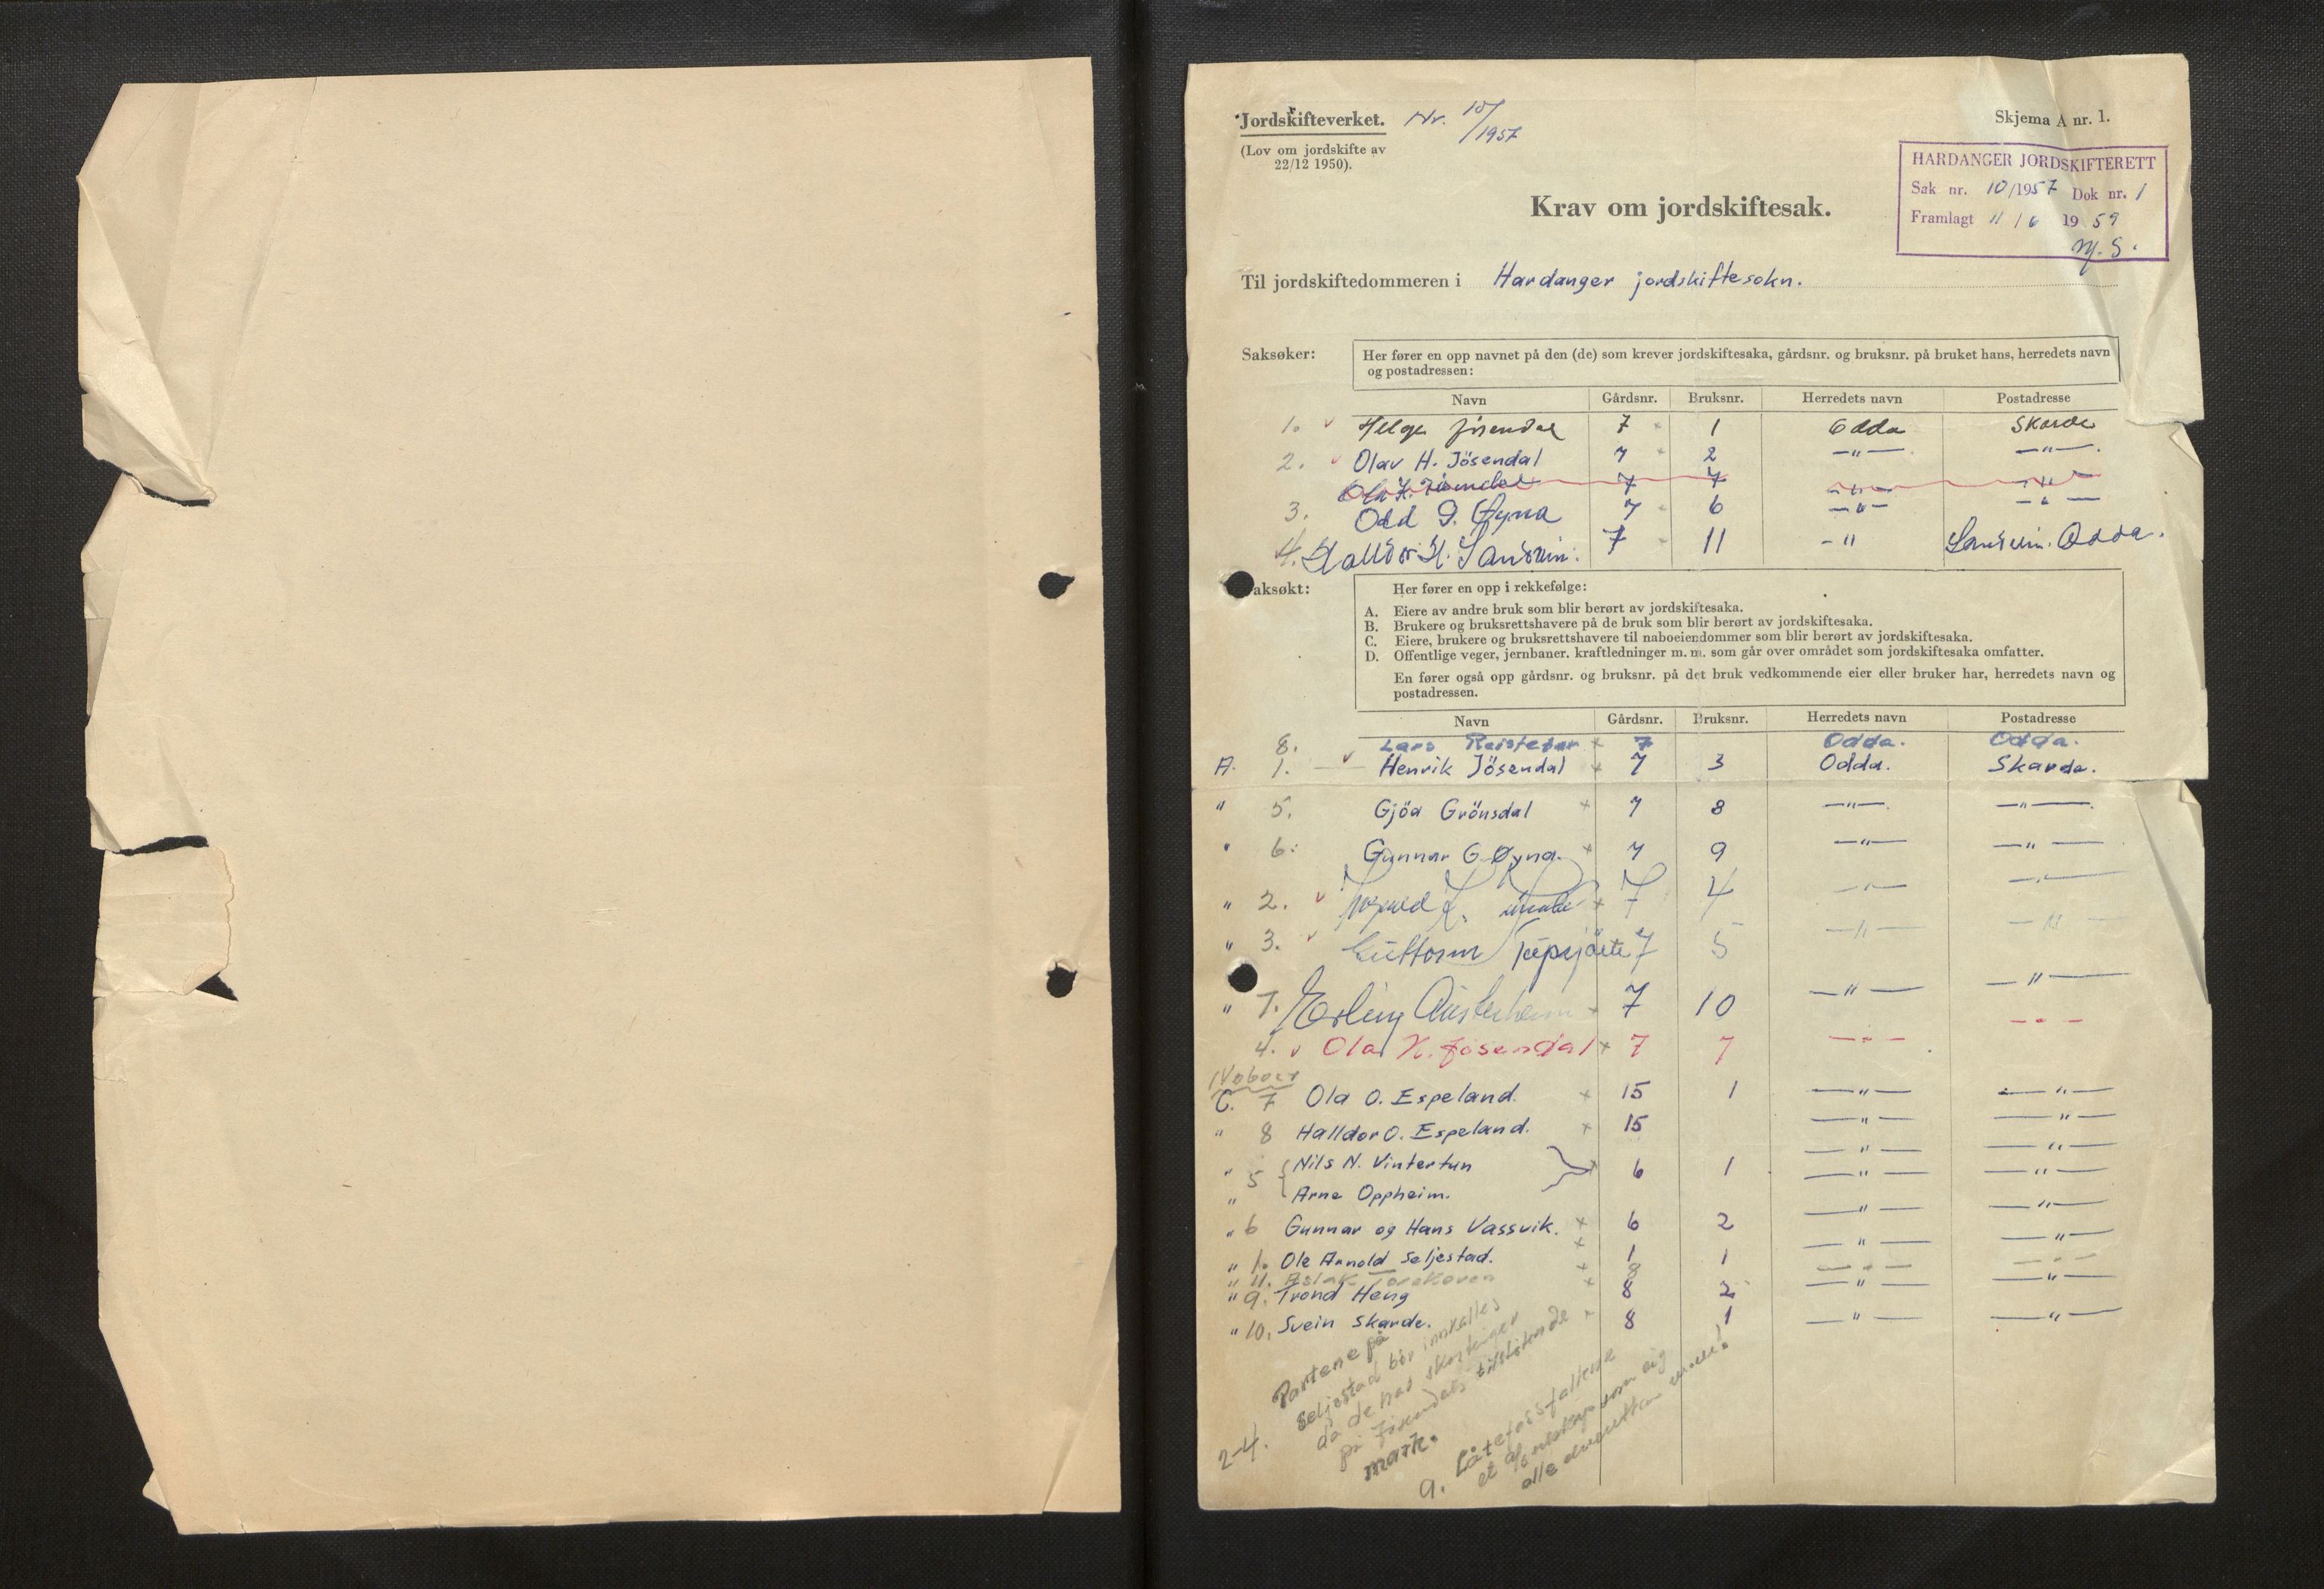 Jordskifteverket. Nr. 10/1957
Skjema A nr. 1.
(Lov om jordskifte av
22/12 1950).
HARDANGER JORDSKIFTERETT
Sak nr. 10/1957 Dok nr. 1
Framlagt 11/6 1959
M. S.
Krav om jordskiftesak.
Til jordskiftedommeren i Hardanger jordskiftesokn.
Saksøker:
Her fører en opp navnet på den (de) som krever jordskiftesaka, gårdsnr. og bruksnr. på bruket hans, herredets navn
og postadressen:
Navn Gårdsnr. Bruksnr. Herredets navn Postadresse
1. v Helge Jösendal 7 1 Odda Skarde
2. v Olav H. Jösendal 7 2 —"— —"—
Ola K. Jösendal 7 7 —"— —"—
3. Odd G. Øyna 7 6 —"— —"—
4. Halldor H. Sandvin. 7 11 —" Sandvin. Odda.
aksøkt:
Her fører en opp i rekkefølge:
A. Eiere av andre bruk som blir berørt av jordskiftesaka.
B. Brukere og bruksrettshavere på de bruk som blir berørt av jordskiftesaka.
C. Eiere, brukere og bruksrettshavere til naboeiendommer som blir berørt av jordskiftesaka.
D. Offentlige veger, jernbaner, kraftledninger m. m. som går over området som jordskiftesaka omfatter.
En fører også opp gårdsnr. og bruksnr. på det bruk vedkommende eier eller bruker har, herredets navn og
postadressen.
Navn Gårdsnr. Bruksnr. Herredets navn Postadresse
8. Lars Reisteter x 7 Odda. Odda.
A. 1. — v Henrik Jösendal x 7 3 Odda. Skarde.
" 5. Gjöa Grönsdal x 7 8 —"— —"—
" 6. Gunnar G. Øyna. x 7 9 —"— —"—
" 2. v x 7 4 —"— —"—
" 3. v Guttorm 7 5 —"— —"—
" 7. Erling Austerheim x 7 10 —"— —"—
4. v Ola K. Jösendal x 7 7 —"— —"—
Naboer
C. 7 Ola O. Espeland. x 15 1 —"— —"—
" 8 Halldor O. Espeland. x 15 —"— —"—
" 5 Nils N. Vintertun x 6 1 —"— —"—
" Arne Oppheim. —"— —"—
" 6 Gunnar og Hans Vassvik. x 6 2 —"— —"—
" 1. Ole Arnold Seljestad. x 1 1 —"— —"—
" 11. Aslak x 8 —"— —"—
" 9. Trond Heng x 8 2 —"— —"—
" 10. Svein Skarde. x 8 1 —"— —"—
2-4. Partene på
Seljestad bør innkalles
da de har
på Jösendals tilstötende
mark.
9. Låtefossfallene
et som eig
alle